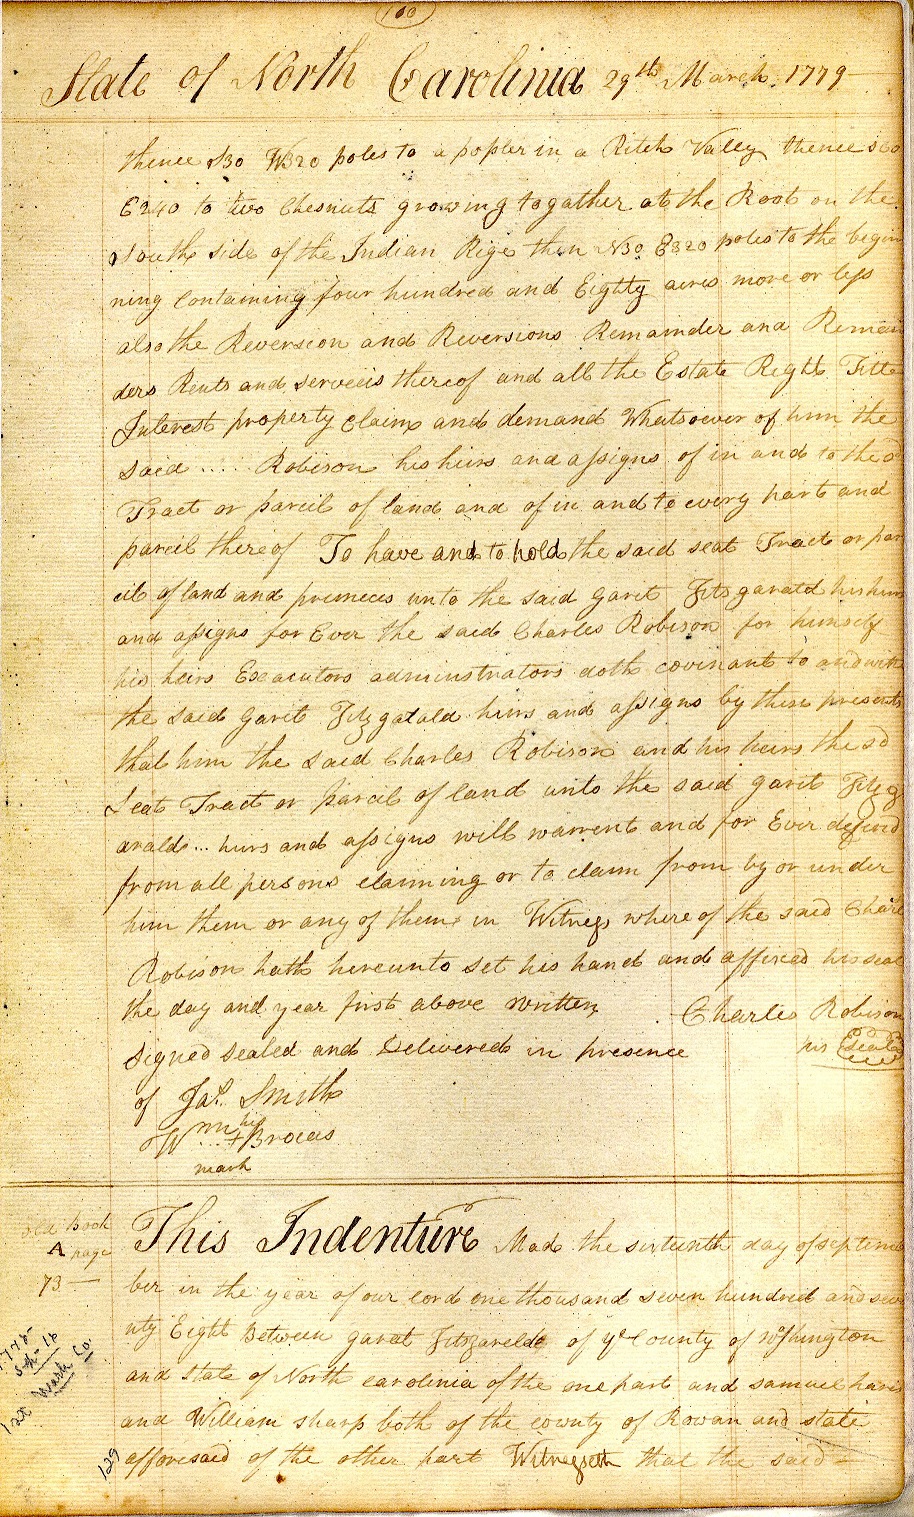 100
State of North Carolina 29th March 1779
thence S30 W320 poles to a popler in a Ritch Valley thence S60
E240 to two Chesnuts growing togather at the Root on the
South side of the Indian Rige then N30 E320 poles to the begin
ning Containing four hundred and Eighty acres more or less
also the Reversion and Reversions Remainder and Remain
ders Rents and services thereof and all the Estate Right Title
Interest property Claim and demand Whatsoever of him the
said .... Robison his heirs and assigns of in and to the sd
Tract or parcil of land and of in and to every part and
parcel there of To have and to hold the said seat Tract or par
cil of land and premeces unto the said Garit Fitzgarald his heirs
and assigns for Ever the said Charles Robison for himself
his heirs Executors administrators doth covinant to and with
the said Garit Fitzgatald heirs and assigns by these presents
that him the said Charles Robison and his heirs the sd
Seat Tract or parcil of land unto the said Garit Fitzg
arald... heirs and assigns will warrent and for Ever defend
from all persons claiming or to claim from by or under
him them or any of them in Witness where of the said Charl
Robison hath hereunto set his hand and affixed his seal
the day and year first above written Charles Robison
Signed sealed and Delivered in presence his Seal
of Jas. Smith
Wm his + Brocas
mark
old Book
A page
73 —
This Indenture Made the sixteenth day of septem
ber in the year of our lord one thousand seven hundred and seve
nty Eight Between Garat Fitzgarelde of ye County of Washington
and State of North carolina of the one part and Samuel haris
and William sharp both of the county of Rowan and state
afforesaid of the other part Witnesseth that the said
1778-
Sept-16
1st Wash Co.
129